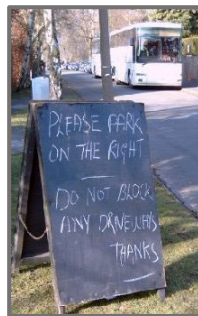 PLEASE PARK
ON THE RIGHT
DO NOT BLOCK
ANY DRIVEWAYS
THANKS